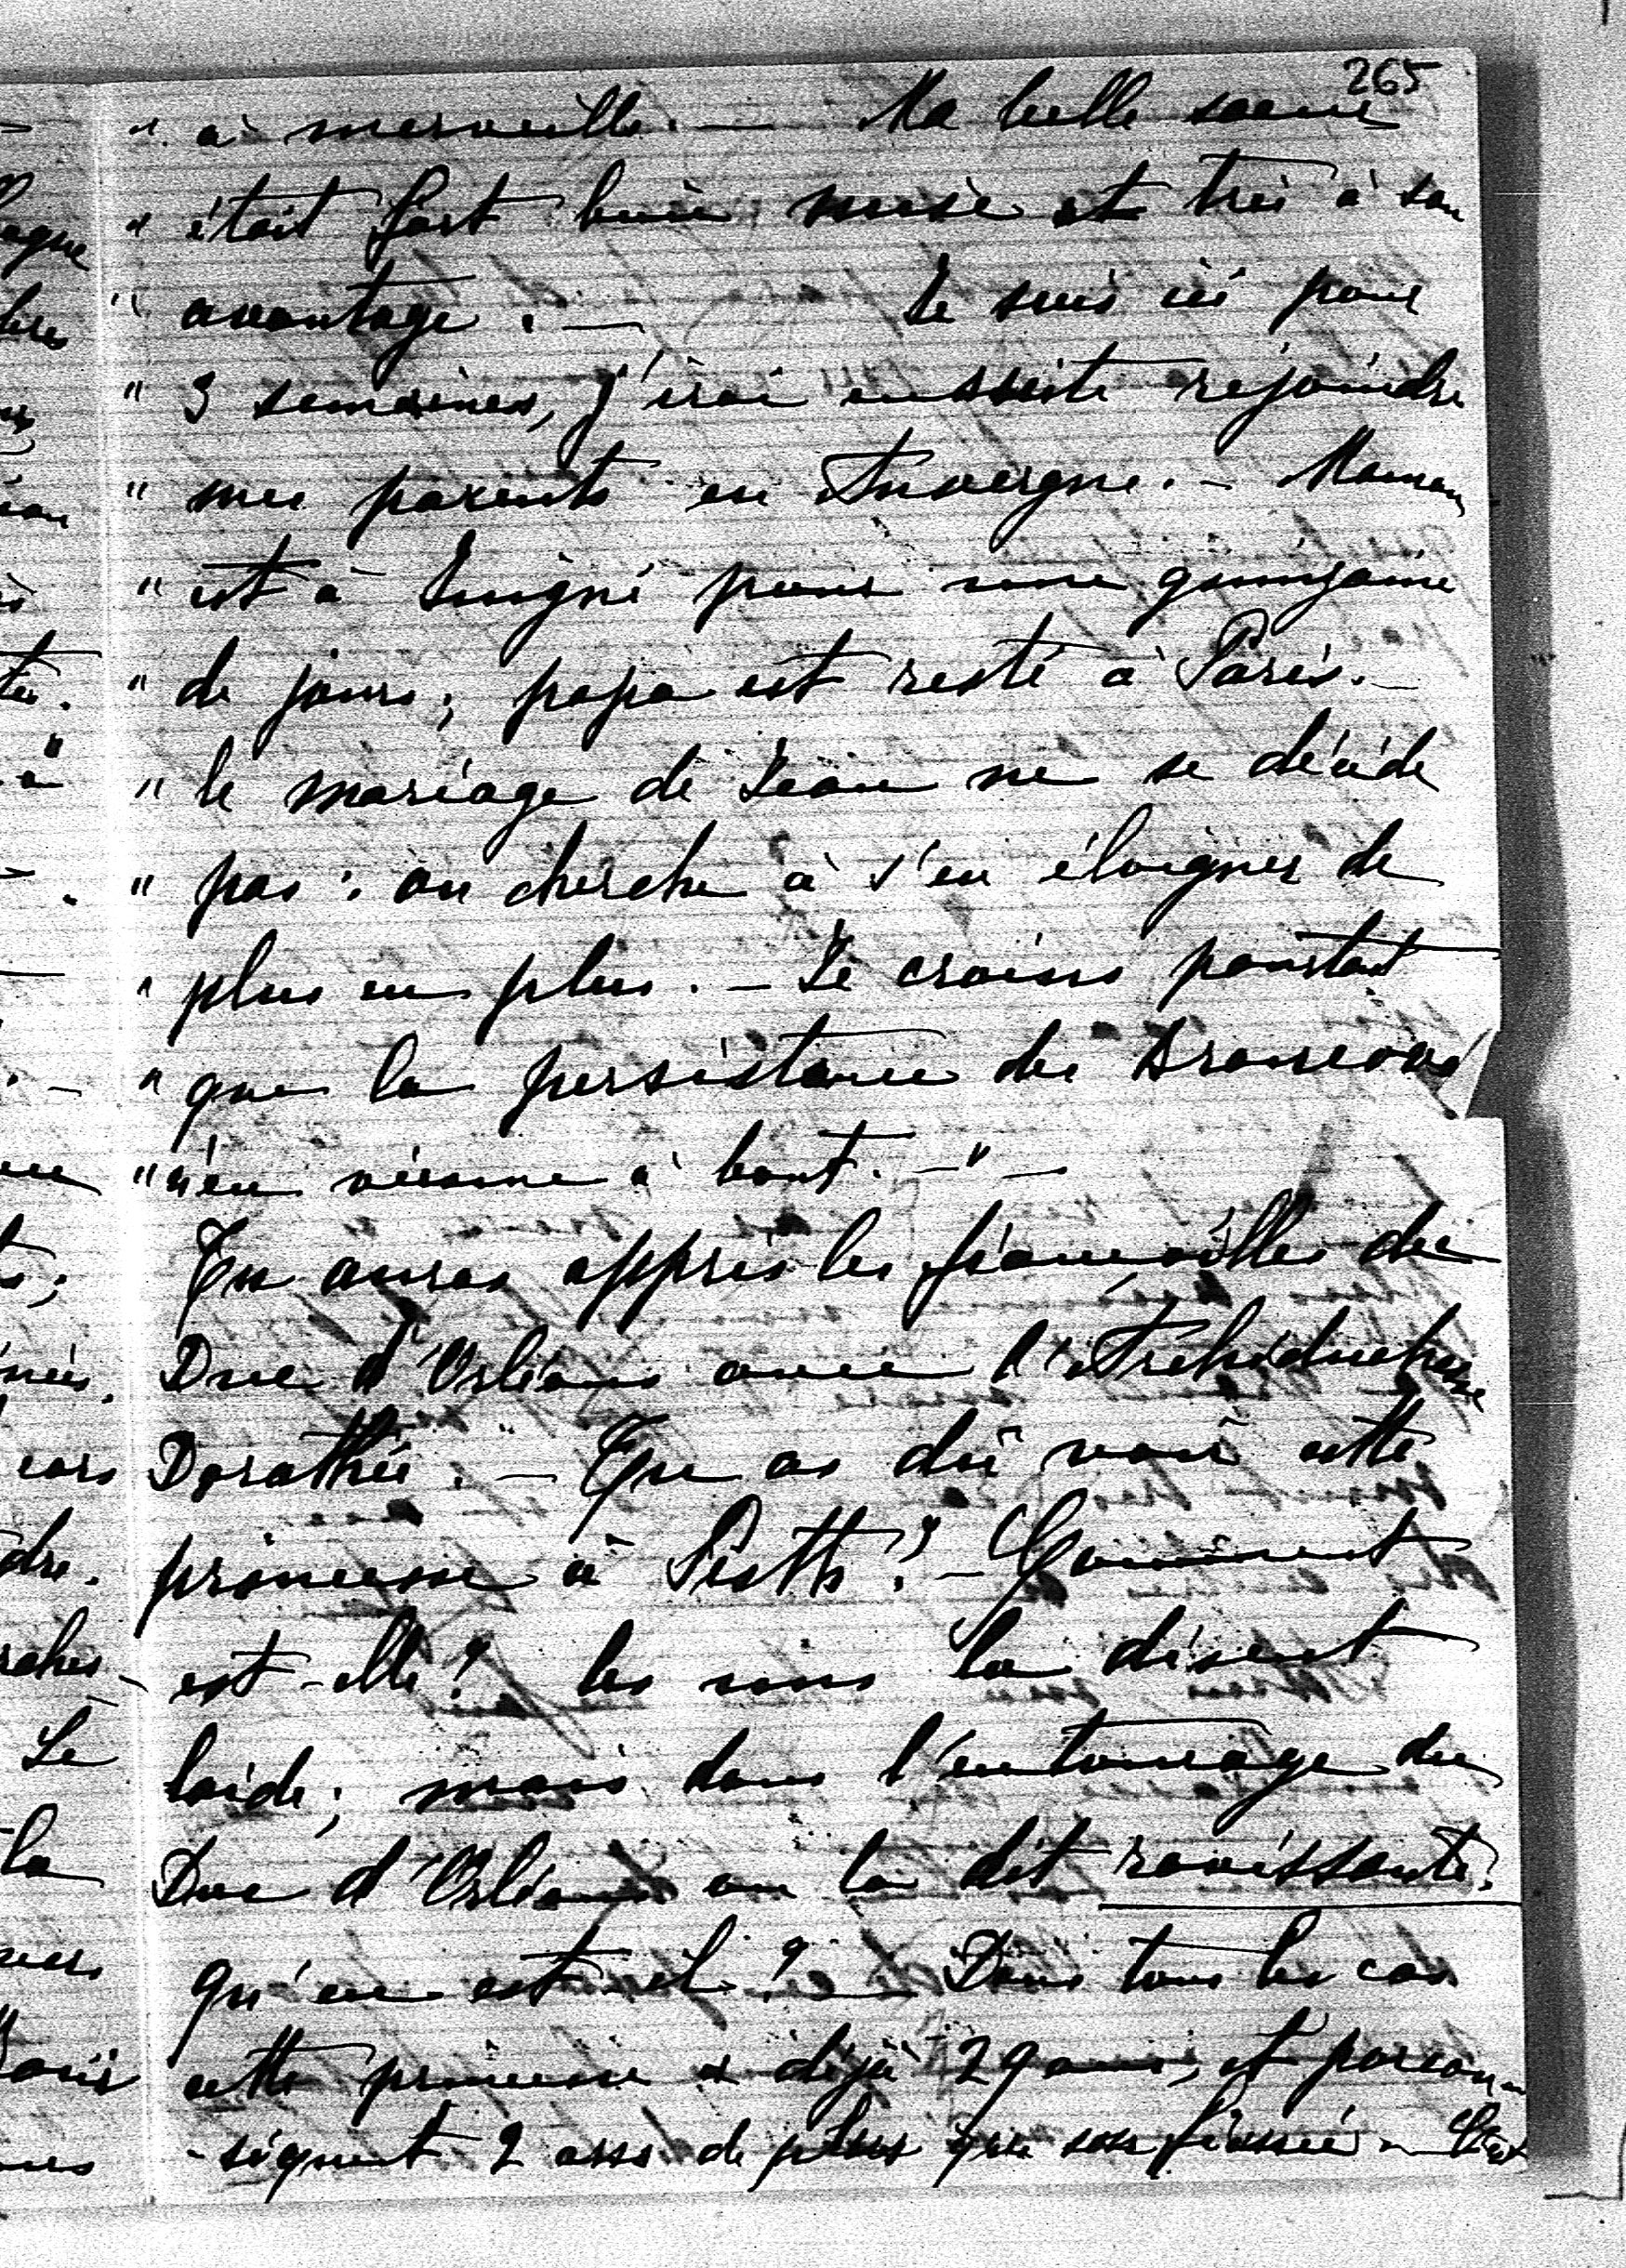 265
" à merveille. — Ma belle soeur
" était fort bien mise et très à son
" avantage. — Je suis ici pour
" 3 semaines, j'irai ensuite rejoindre
" mes parents en Auvergne. - Maman
" est à Juigné pour une quinzaine
" de jours; papa est resté à Paris. -
" le mariage de Jean ne se décide
" pas : on cherche à s'en éloigner de
" plus en plus. - Je crains pourtant
" que la persistance des
" n'en vienne à bout. —" —
Tu auras appris les fiançailles du
Duc d'Orléans avec l'Archiduchesse
Dorothée. — Tu as dû voir cette
princesse à Pesth? - Comment
est-elle? les uns la disent
laide; mais dans l'entourage du
Duc d'Orléans on la dit ravissante.
qu'en est-il? — Dans tous les cas
cette princesse a déjà 29 ans, et par con-
-séquent 2 ans de plus que son fiancé - C'est